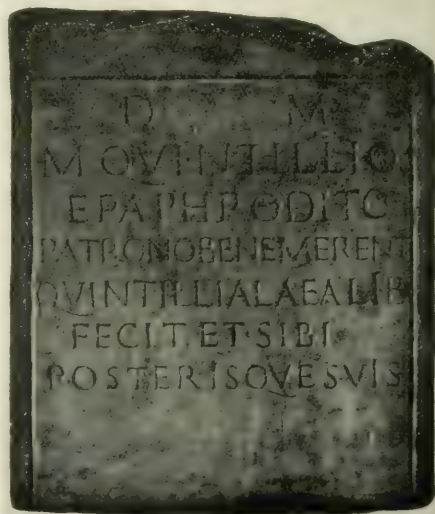 D M
M QVINTILLIO
EPAPHRODITO
PATRONOBENEMERENT
QVINTILLIALAEALIB
FECIT ET SIBI
POSTERISQVESVIS